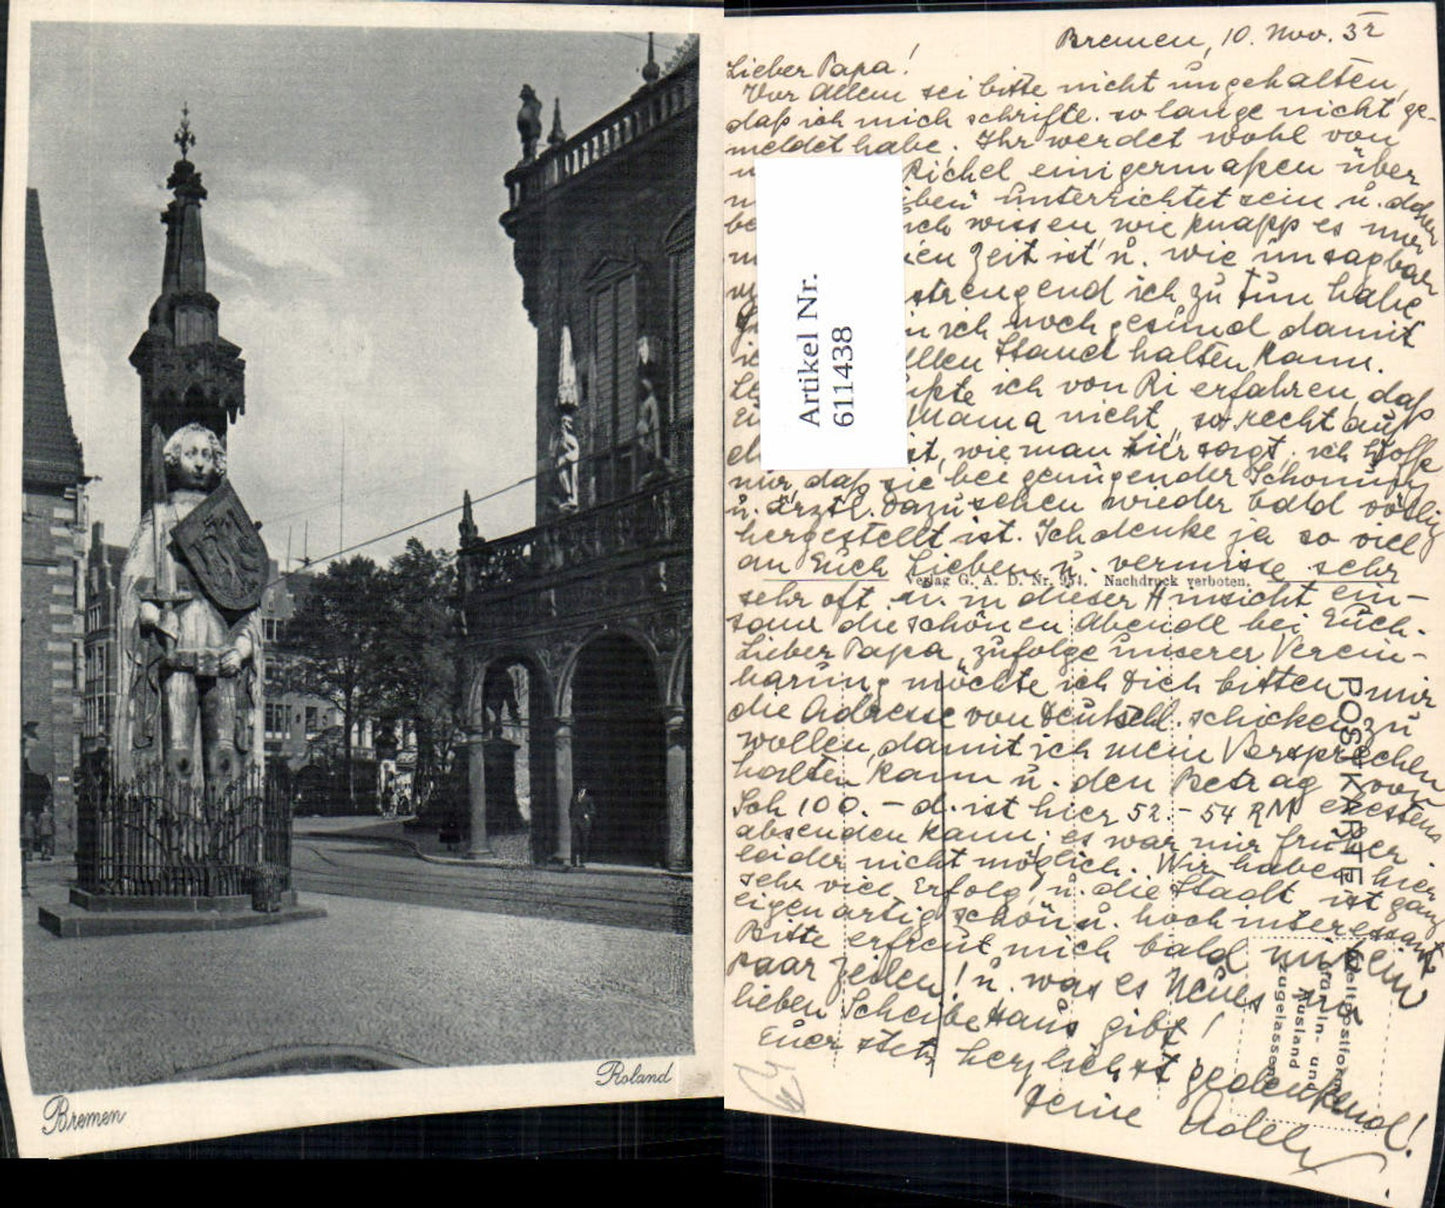 Bremen
Roland
Bremen, 10. Nov. 32
Lieber Papa!
Vor Allem sei bitte nicht ungehalten,
daß ich mich schriftl. so lange nicht ge-
meldet habe. Ihr werdet wohl von
Richel einigermaßen über
unterrichtet sein u. daher
wissen wie knapp es mir
Zeit ist u. wie unsagbar
ich zu tun habe
ich noch gesund damit
Stand halten kann.
ich von Ri erfahren, daß
Mama nicht so recht auf
ist, wie man hier sagt, ich hoffe
nur, daß sie bei genügender Schonung
u. ärztl. Dazusehen wieder bald völlig
hergestellt ist. Ich denke ja so viel
an Euch Lieben u. vermisse sehr
Verlag G. A. D. Nr. 954. Nachdruck verboten.
sehr oft u. in dieser Hinsicht ein-
same die schönen Abende bei Euch.
Lieber Papa, zufolge unserer Verein-
barung möchte ich Dich bitten mir
die Adresse von schicken zu
wollen, damit ich mein Versprechen
halten kann u. den Betrag von
Sch 100.- d. ist hier 52.- 54 RM
absenden kann; es war mir früher
leider nicht möglich. Wir haben hier
sehr viel Erfolg! u. die Stadt ist ganz
eigenartig schön u. hoch interessant
Bitte erfreut mich bald mit ein
paar Zeilen! u. was es Neues im
lieben Scheibe Haus gibt!
Euer stets herzlichst gedenkend!
Deine Adele
POSTKARTE
Weltpostform
Ausland
zugelassen
Artikel Nr.
611438